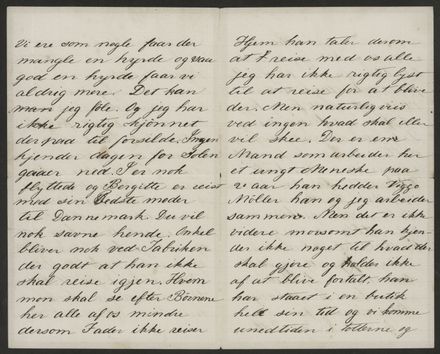 Vi ere som nogle faar der
mangle en hyrde og saa
god en hyrde faar vi
aldrig mere. Det kan
man jeg føle. Og jeg har
ikke rigtig skjønnet
derpaa til forsilde. Ingen
kjender dagen før Solen
gaaer ned. I er nok
flyttede og Bergitte er reist
med sin Bedste moder
til Dannemark. Du vil
nok savne hende. Onkel
bliver nok ved Fabriken
der godt at han ikke
skal reise igjen. Hvem
mon skal se efter Børnene
her alle af os mindre
dersom Fader ikke reiser
Hjem han taler derom
at reise med os alle
jeg har ikke rigtig lyst
til at reise for at blive
der. Men naturligviis
ved ingen hvad skal eller
vil skee. Der er em
Mand som arbeider her
et ungt Meneske paa
aar han hedder Viggo
Möller han og jeg arbeider
sammen. Man det er ikke
videre morsomt han kjen-
der ikke noget til hvad der
skal gjøre og holder ikke
af at blive fortalt. han
har staaet i en butik
hele sin tid og vi komme
unedtiden i totterne og